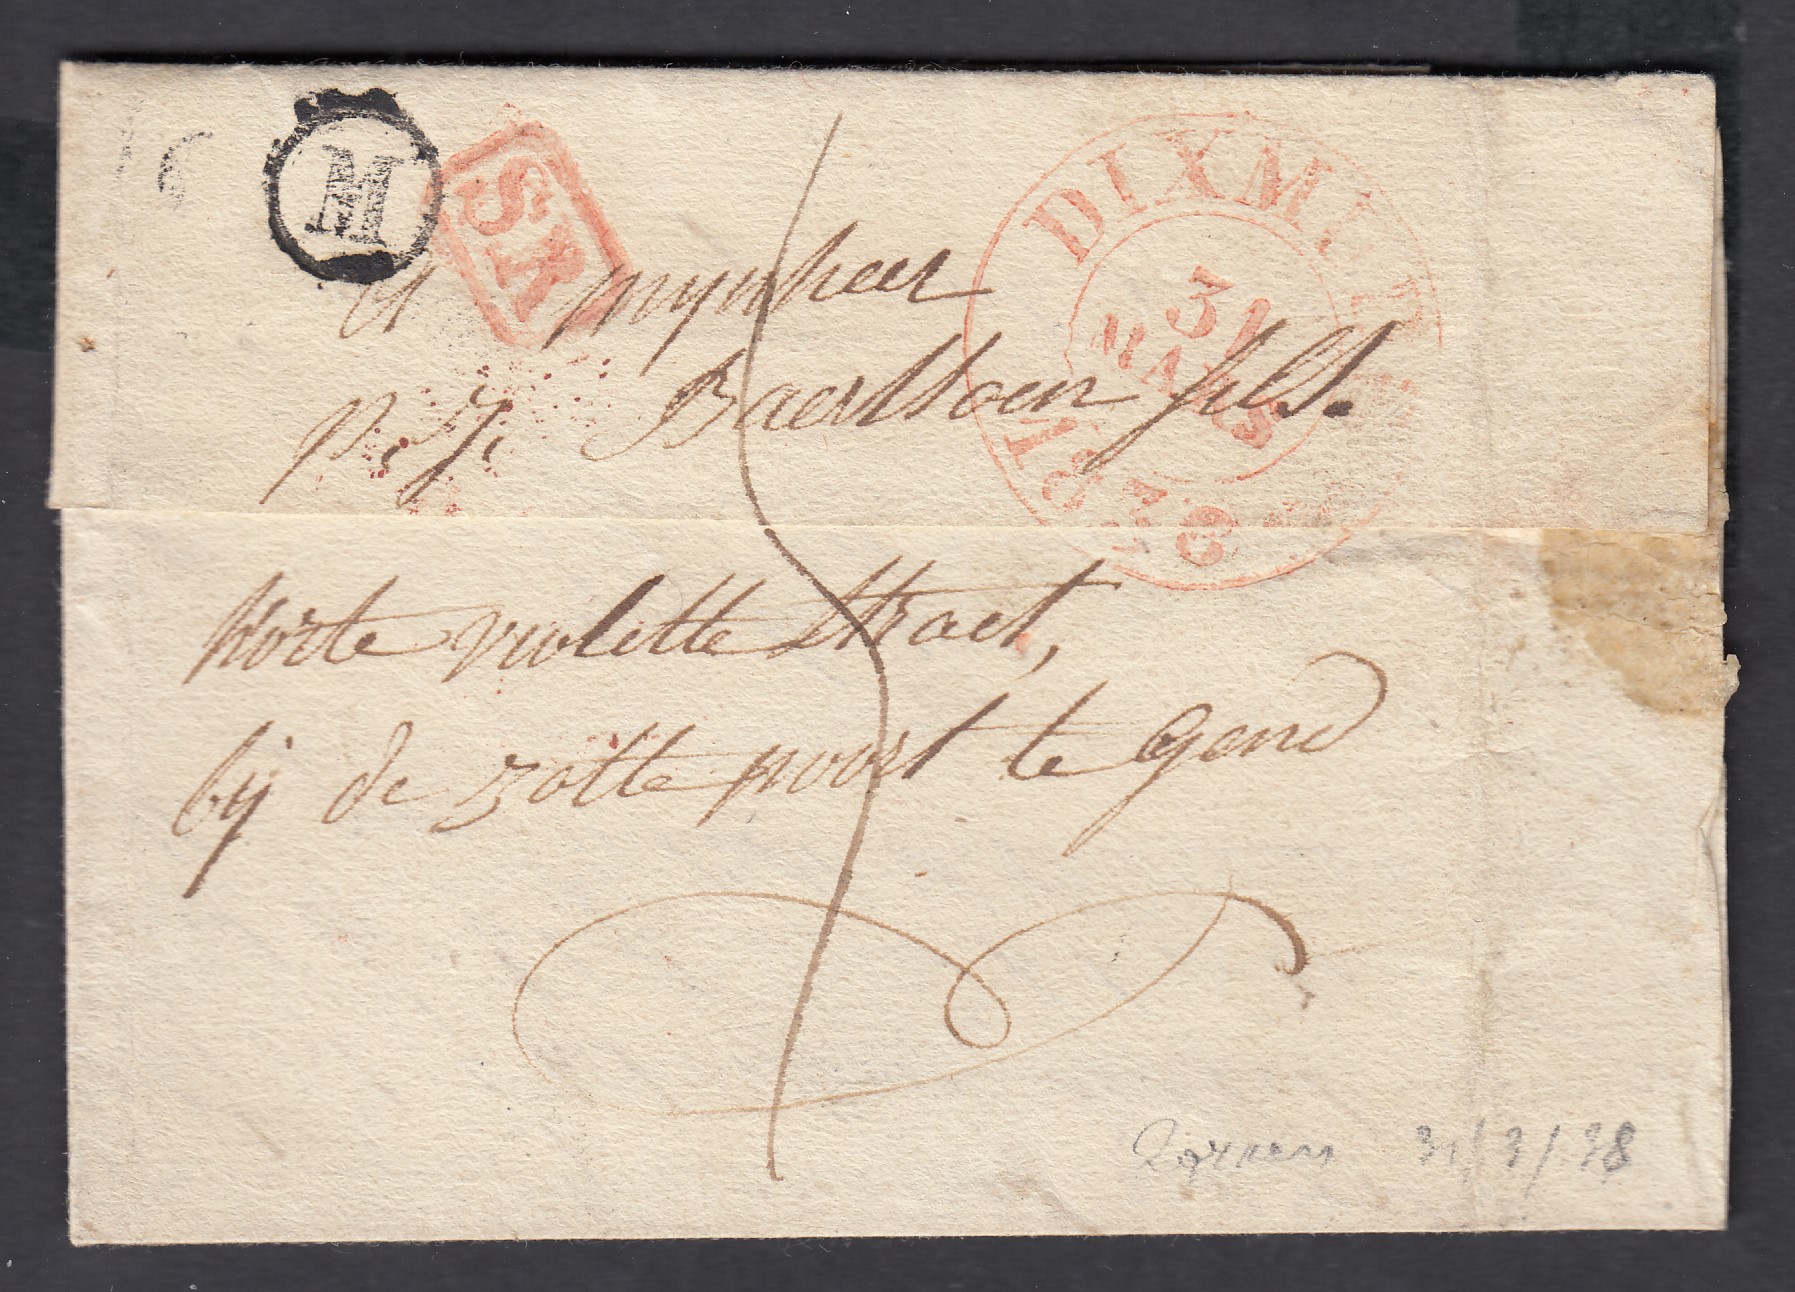 M
SR
DIXMUDE
31
MARS
1838
A mynheer
P. J. Baertsoen fils.
korte violette Straet,
bij de zotte poort te Gend
31/3/38